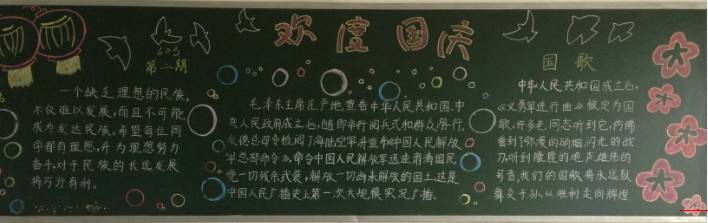 欢度国庆
605
第二期
一个缺乏理想的民族,
不仅难以发展,而且不可能
成为发达民族,希望每位同
学都有理想,并为理想努力
奋斗,对于民族的长远发展
将万分有利。
毛泽东主席庄严地宣告中华人民共和国、中
央人民政府成立后,随即举行阅兵式和群众游行,
朱德总司令检阅了海陆空军并宣布中国人民解放
军总部命令》,命令中国人民解放军迅速肃清国民
党一切残余武装,解放一切尚未解放的国土,这是
中国人民广播史上第一次大规模实况广播。
国歌
中华人民共和国成立后,
《义勇军进行曲》被定为国
歌,许多老同志听到它,仿佛
看到了弥漫的硝烟,闪光的战
刀,听到隆隆的炮声,雄伟的
号音,我们的国歌将永远鼓
舞炎子孙从胜利走向辉煌